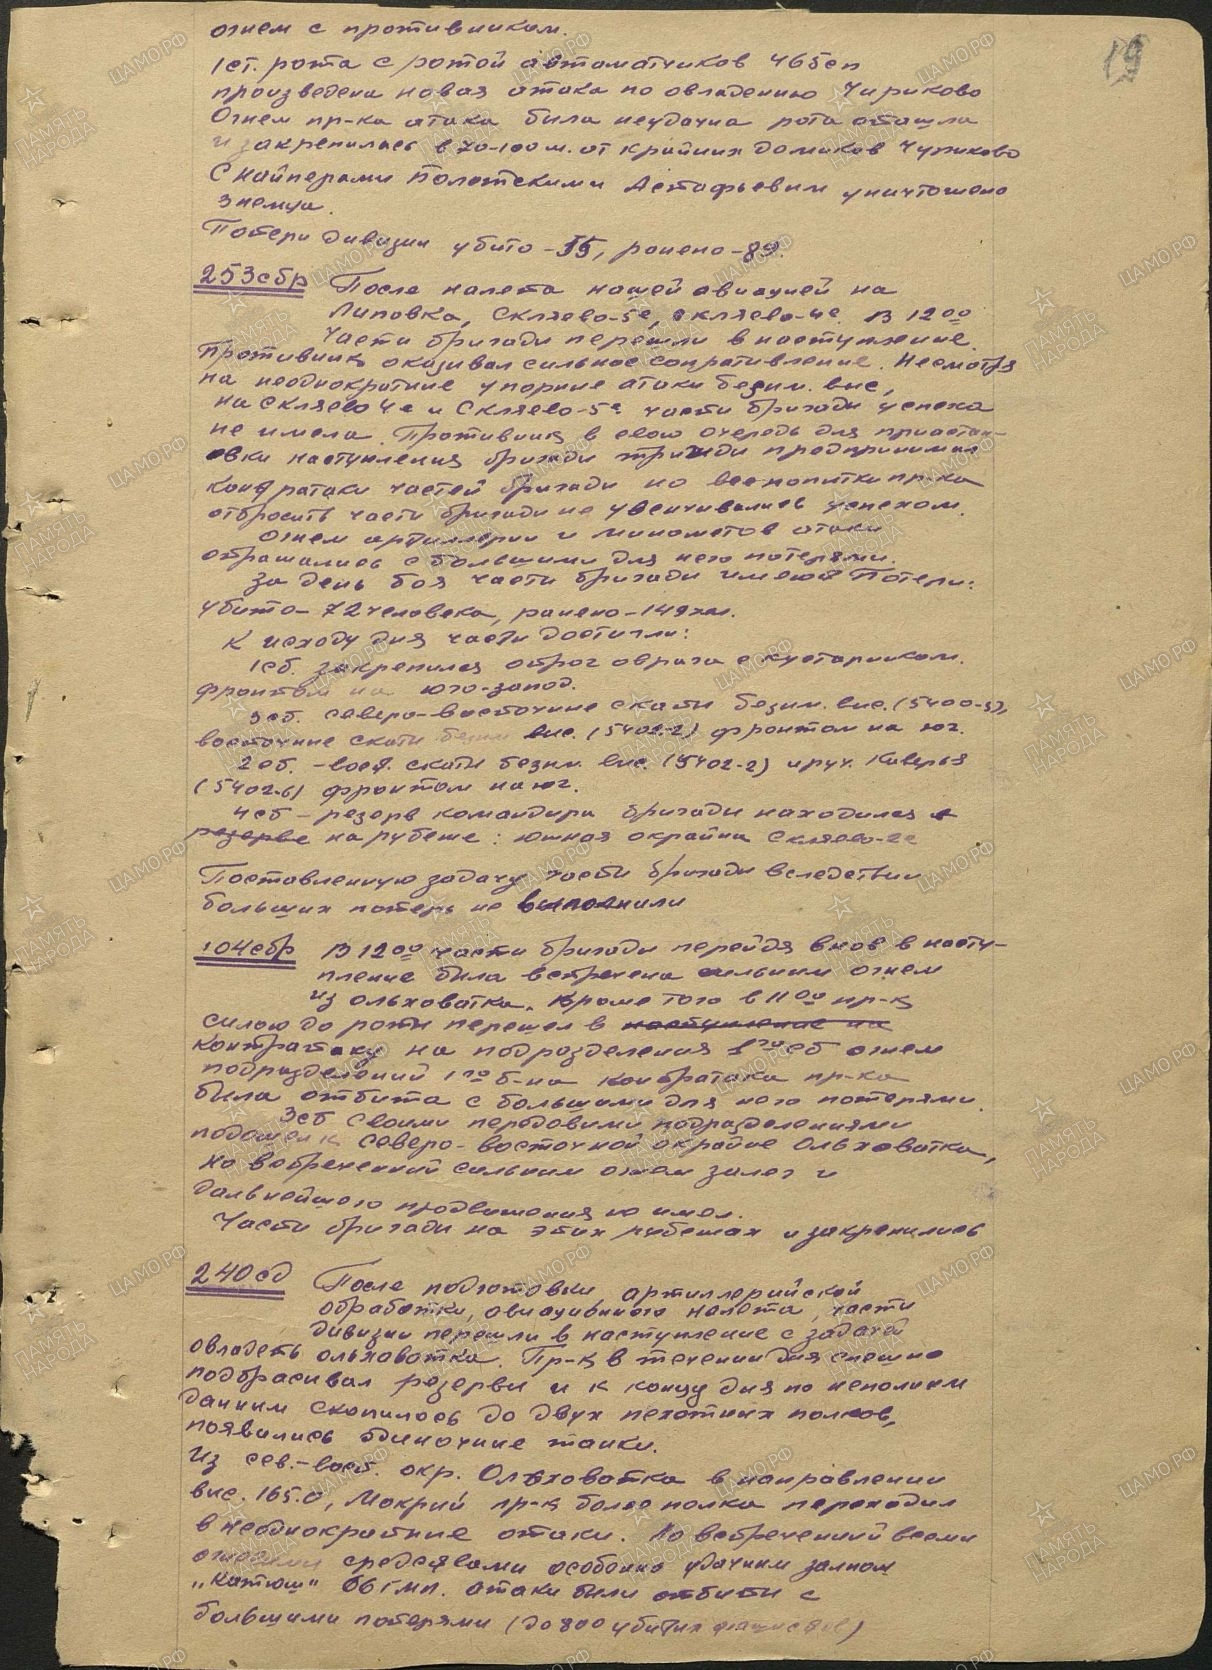 19
огнем с противником.
1ст. рота с ротой автоматчиков 465сп
произведена новая атака по овладению Чириково
Огнем пр-ка атака была неудачна рота отошла
и закрепилась в 70-100 м. от крайних домиков Чуриково
Снайперами Полотскими Астафьевым уничтожено
3 немца.
Потери дивизии убито-55, ранено-89.
253сбр После налета нашей авиацией на
Липовка, Скляево-5е, Скляево-4е В 12 00
части бригады перешли в наступление.
Противник оказывал сильное сопративление. Несмотря
на неоднократные упорные атаки безим. выс,
на Скляево 4е и Скляево-5е части бригады успеха
не имела. Противник в свою очередь для приостан-
овки наступления бригады трижды предпринимал
контратаки частей бригады но все попытки пр-ка
отбросить части бригады не увенчивались успехом.
Огнем артиллерии и минометов атаки
отражались с большими для него потерями.
За день боя части бригады имеют потери:
убито-72 человека, ранено-149 чел.
К исходу дня части достигли:
1сб. закрепился отрог оврага с кустарником.
фронтом на юго-запад.
3сб. северо-восточные скаты безим. выс. (5400-3),
восточные скаты безим выс. (5402-2) фронтом на юг.
2сб. -вост. скаты безим. выс. (5402-2) и руч. Каверья
(5402-6) фронтом на юг.
4сб - резерв командира бригады находился в
резерве на рубеже: южная окраина Скляево-2е
Поставленную задачу части бригады вследствии
больших потерь не выполнили
104сбр В 12 00 части бригады перейдя внов в насту-
пление была встречена сильным огнем
из Ольховатка. Кроме того в 11 00 пр-к
силою до роты перешел в наступление на
контратаку на подразделения 1го сб огнем
подразделений 1го б-на контратака пр-ка
была отбита с большими для него потерями.
3сб своими передовыми подразделениями
подошел к северо-восточной окраине Ольховатка,
но встреченный сильным огнем залег и
дальнейшего продвижения не имел.
Части бригады на этих рубежах и закрепились
240сд После подготовки, артиллерийской
обработки, авиационного налета, части
дивизии перешли в наступление с задачей
овладеть Ольховатка. Пр-к в течении дня спешно
подбрасывал резервы и к концу дня по неполным
данным скопилось до двух пехотных полков,
появились одиночные танки.
Из сев.-вост. окр. Ольховатка в направлении
выс. 165.0, Мокрый пр-к более полка переходил
в неоднократные атаки. Но встреченный всеми
огневыми средствами особенно удачным залпом
„Катюш" 66 гмп. атаки были отбиты с
большими потерями (до 800 убитых фашистов)
ЦАМО.РФ
ПАМЯТЬ НАРОДА